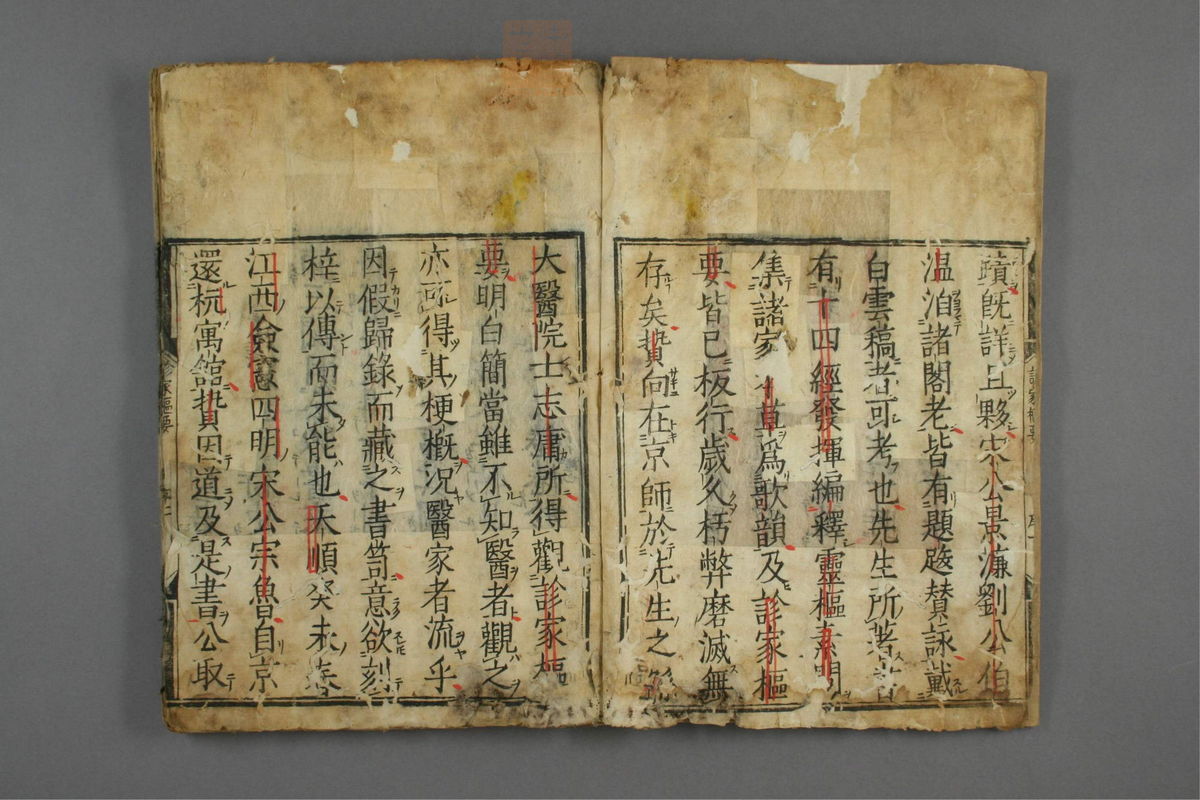 蹟既詳且夥宋公景濂劉公伯
温洎諸閣老皆有題跋賛詠載
白雲稿者可考也先生所著
有十四經發揮編釋靈樞素明
集諸家 草爲歌韻及診家樞
要皆已板行歲久朽弊磨滅無
存矣贄向在京師於先生之
大醫院士志庸所得觀診家樞
要明白簡當雖不知醫者觀之
亦可得其梗概况醫家者流乎
因假歸錄而藏之書笥意欲刻
梓以傳而未能也天順癸未春
江西僉憲四明宋公宗魯自京
還杭寓舘贄因道及是書公取
診家樞要